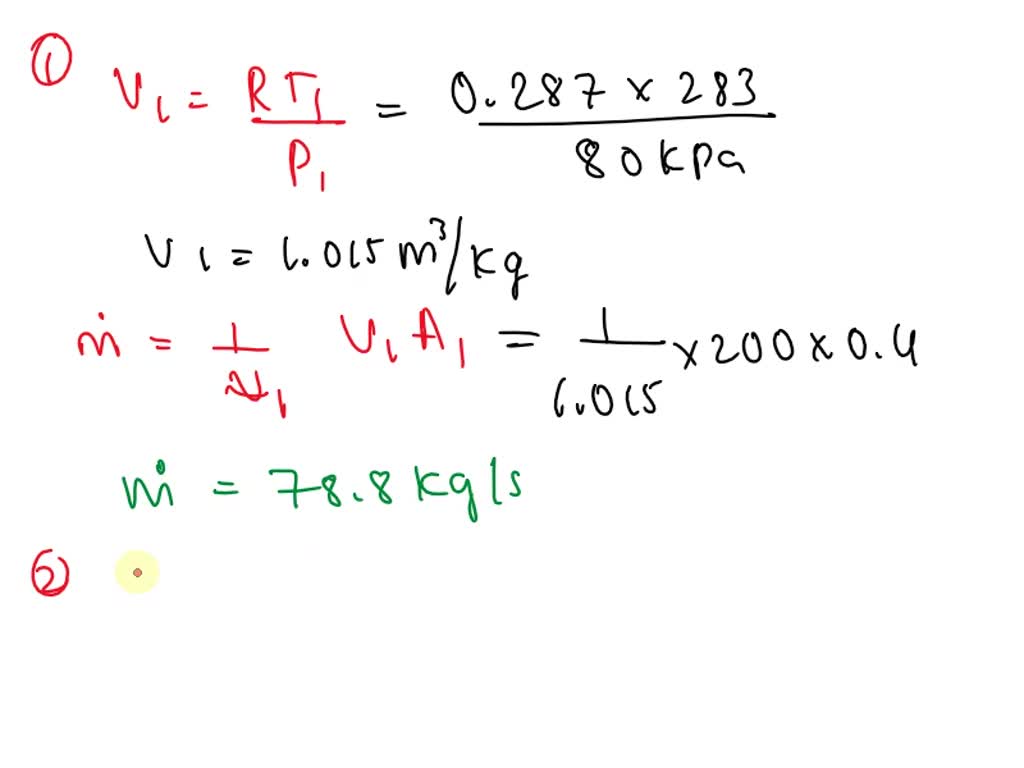 ①
v₁ = RT₁ / P₁ = 0.287 × 283 / 80 kpa
v₁ = 1.015 m³/kg
ṁ = 1/v₁ V₁ A₁ = 1/1.015 × 200 × 0.4
ṁ = 78.8 kg/s
②